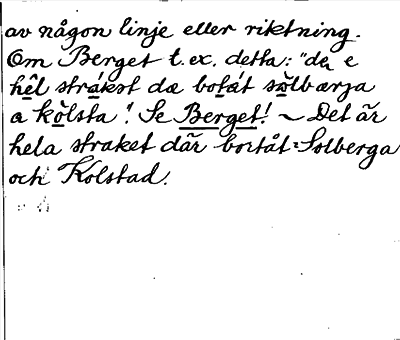 av någon linje eller riktning.
Om Berget t.ex. detta: "de e
hêl strákst dæ botát sòlbærja
a kòlsta". Se Berget! ~ Det är
hela straket där bortåt: Solberga
och Kolstad.